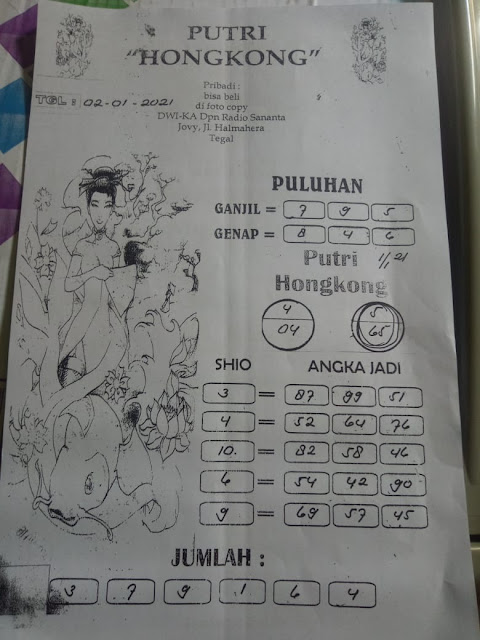 PUTRI
"HONGKONG"
Pribadi :
bisa beli
di foto copy
DWI-KA Dpn Radio Sananta
Jovy, Jl. Halmahera
Tegal
TGL : 02-01-2021
PULUHAN
GANJIL = 7 9 5
GENAP = 8 4 6
Putri 1/1 21
Hongkong
4 5
04 65
SHIO ANGKA JADI
3 = 87 99 51
4 = 52 64 76
10. = 82 58 46
6 = 54 42 90
9 = 69 57 45
JUMLAH :
3 7 9 1 6 4